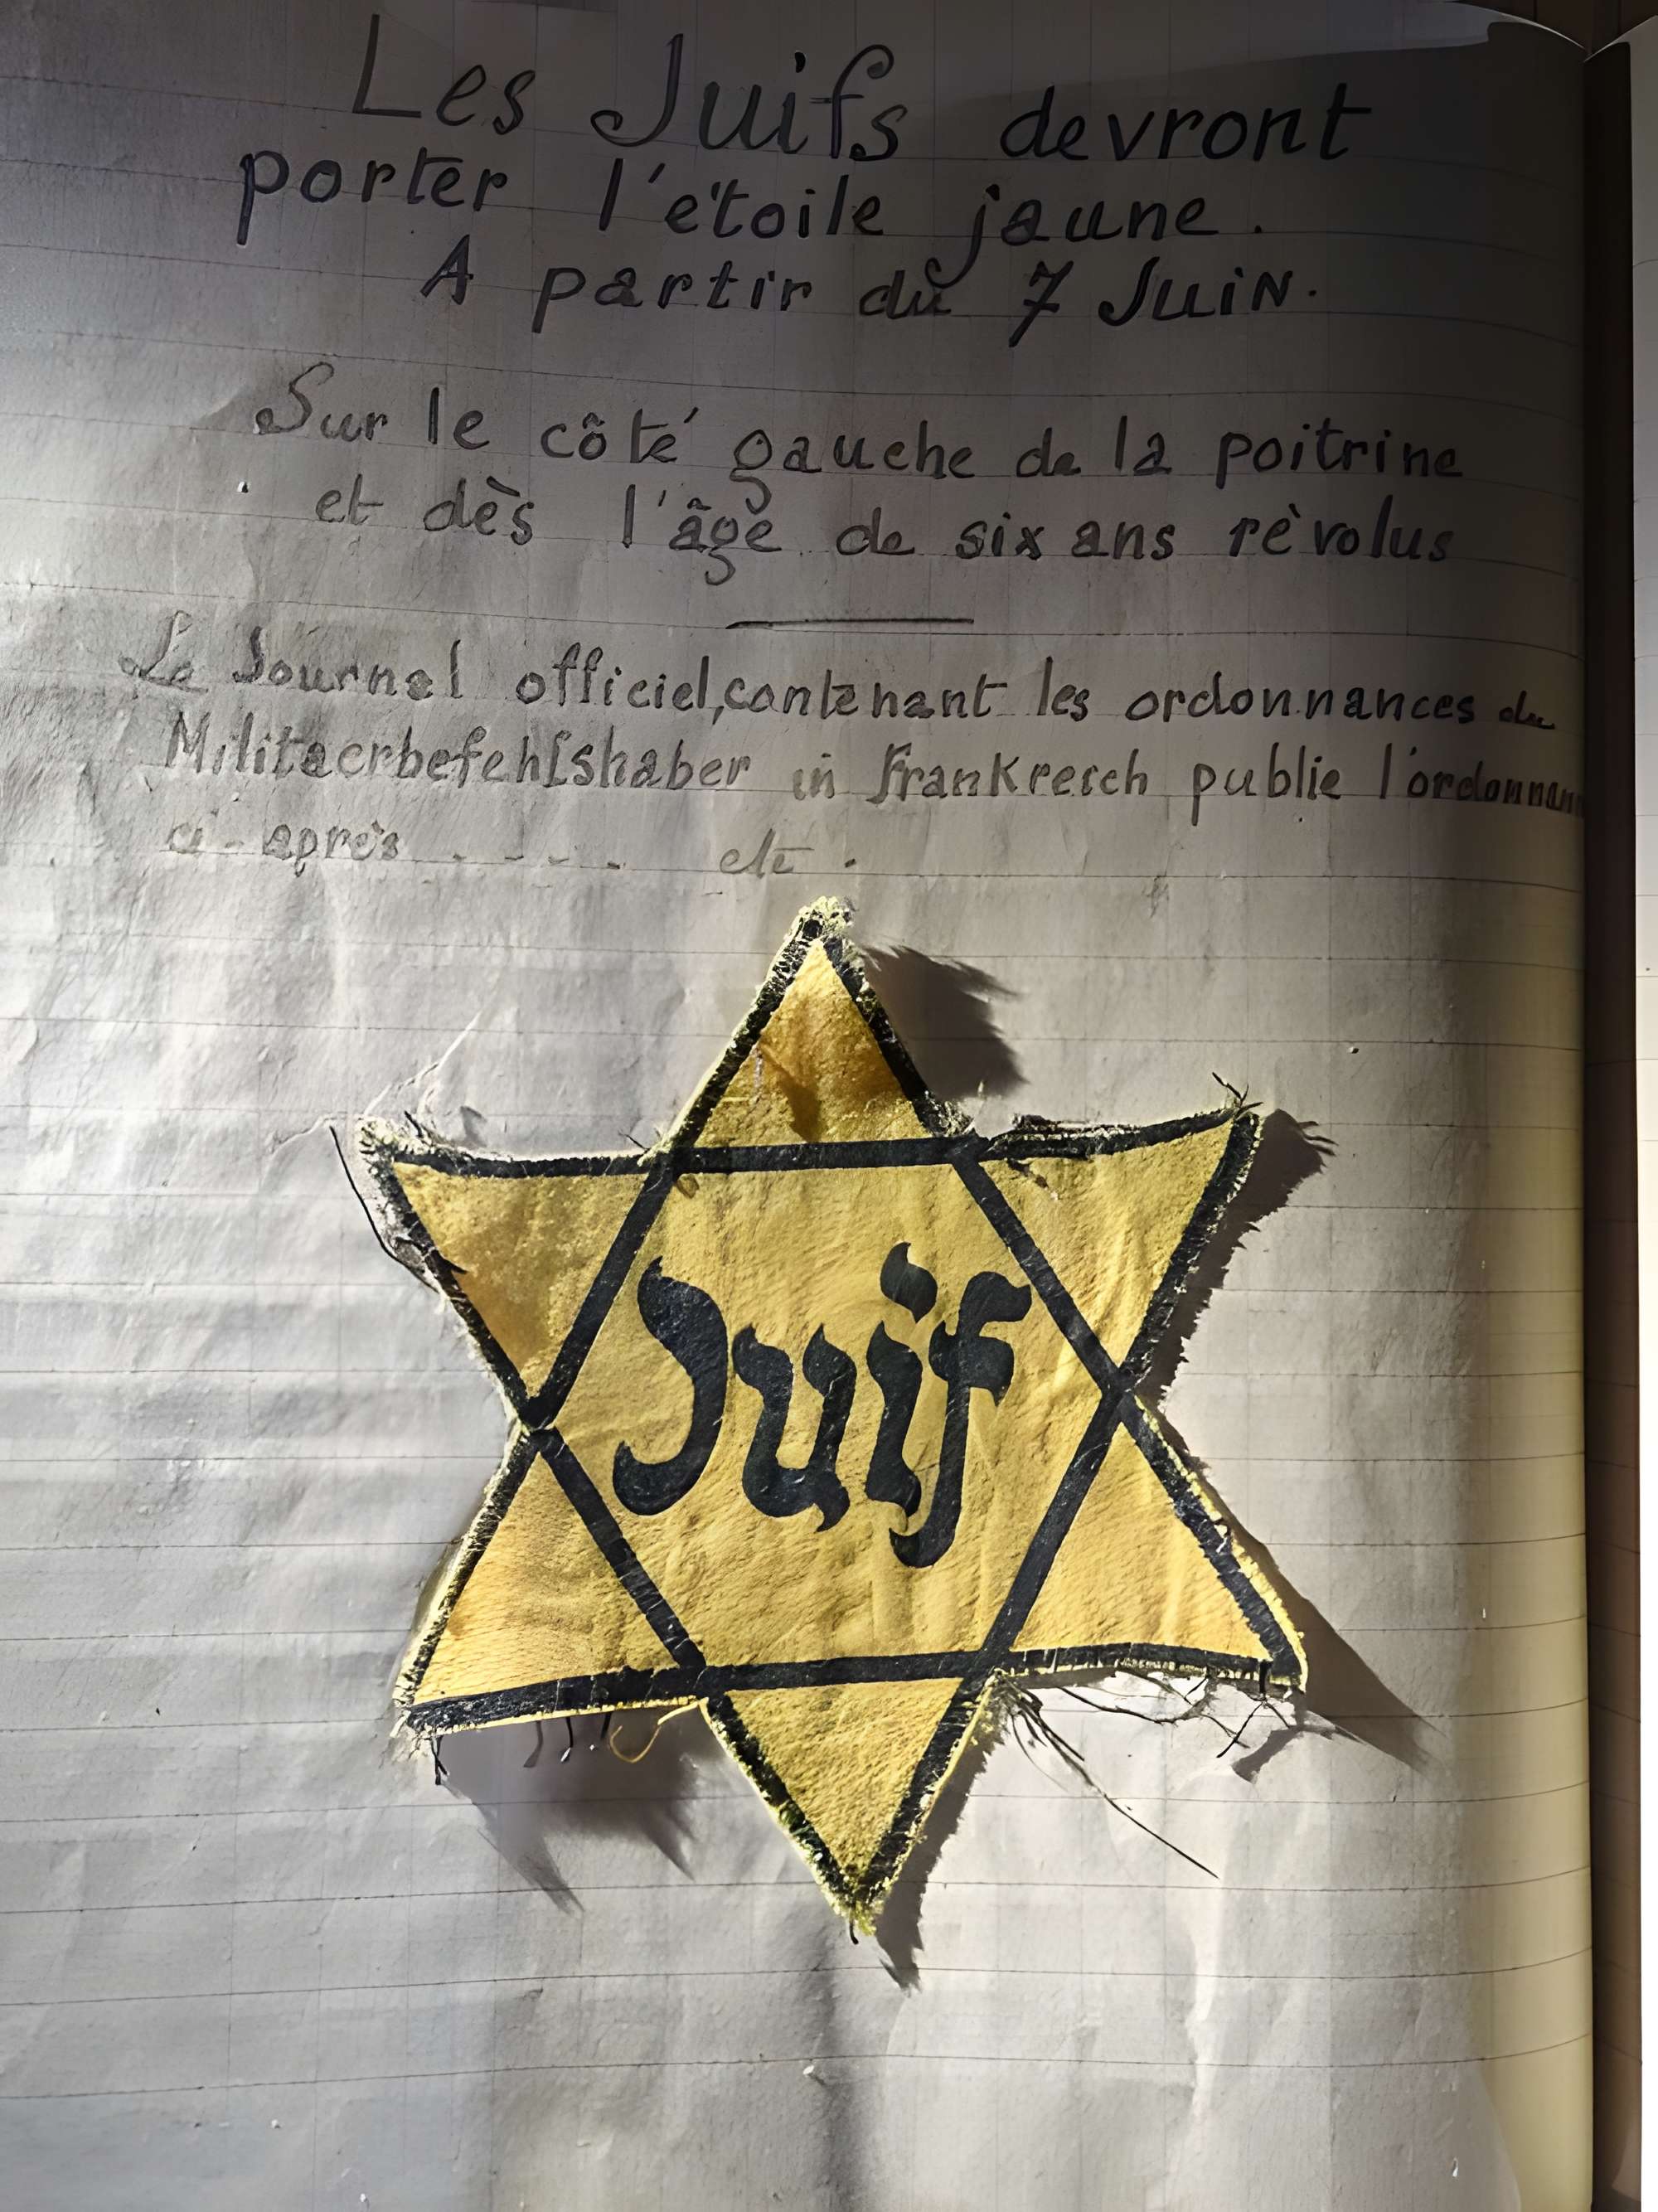 Les Juifs devront
porter l'étoile jaune.
A partir du 7 JuiN.
Sur le côté gauche de la poitrine
et dès l'âge de six ans rèvolus
Le Journal officiel, contenant les ordonnances du
Militaerbefehlshaber in Frankreich publie
ci-après ..... etc.
Juif